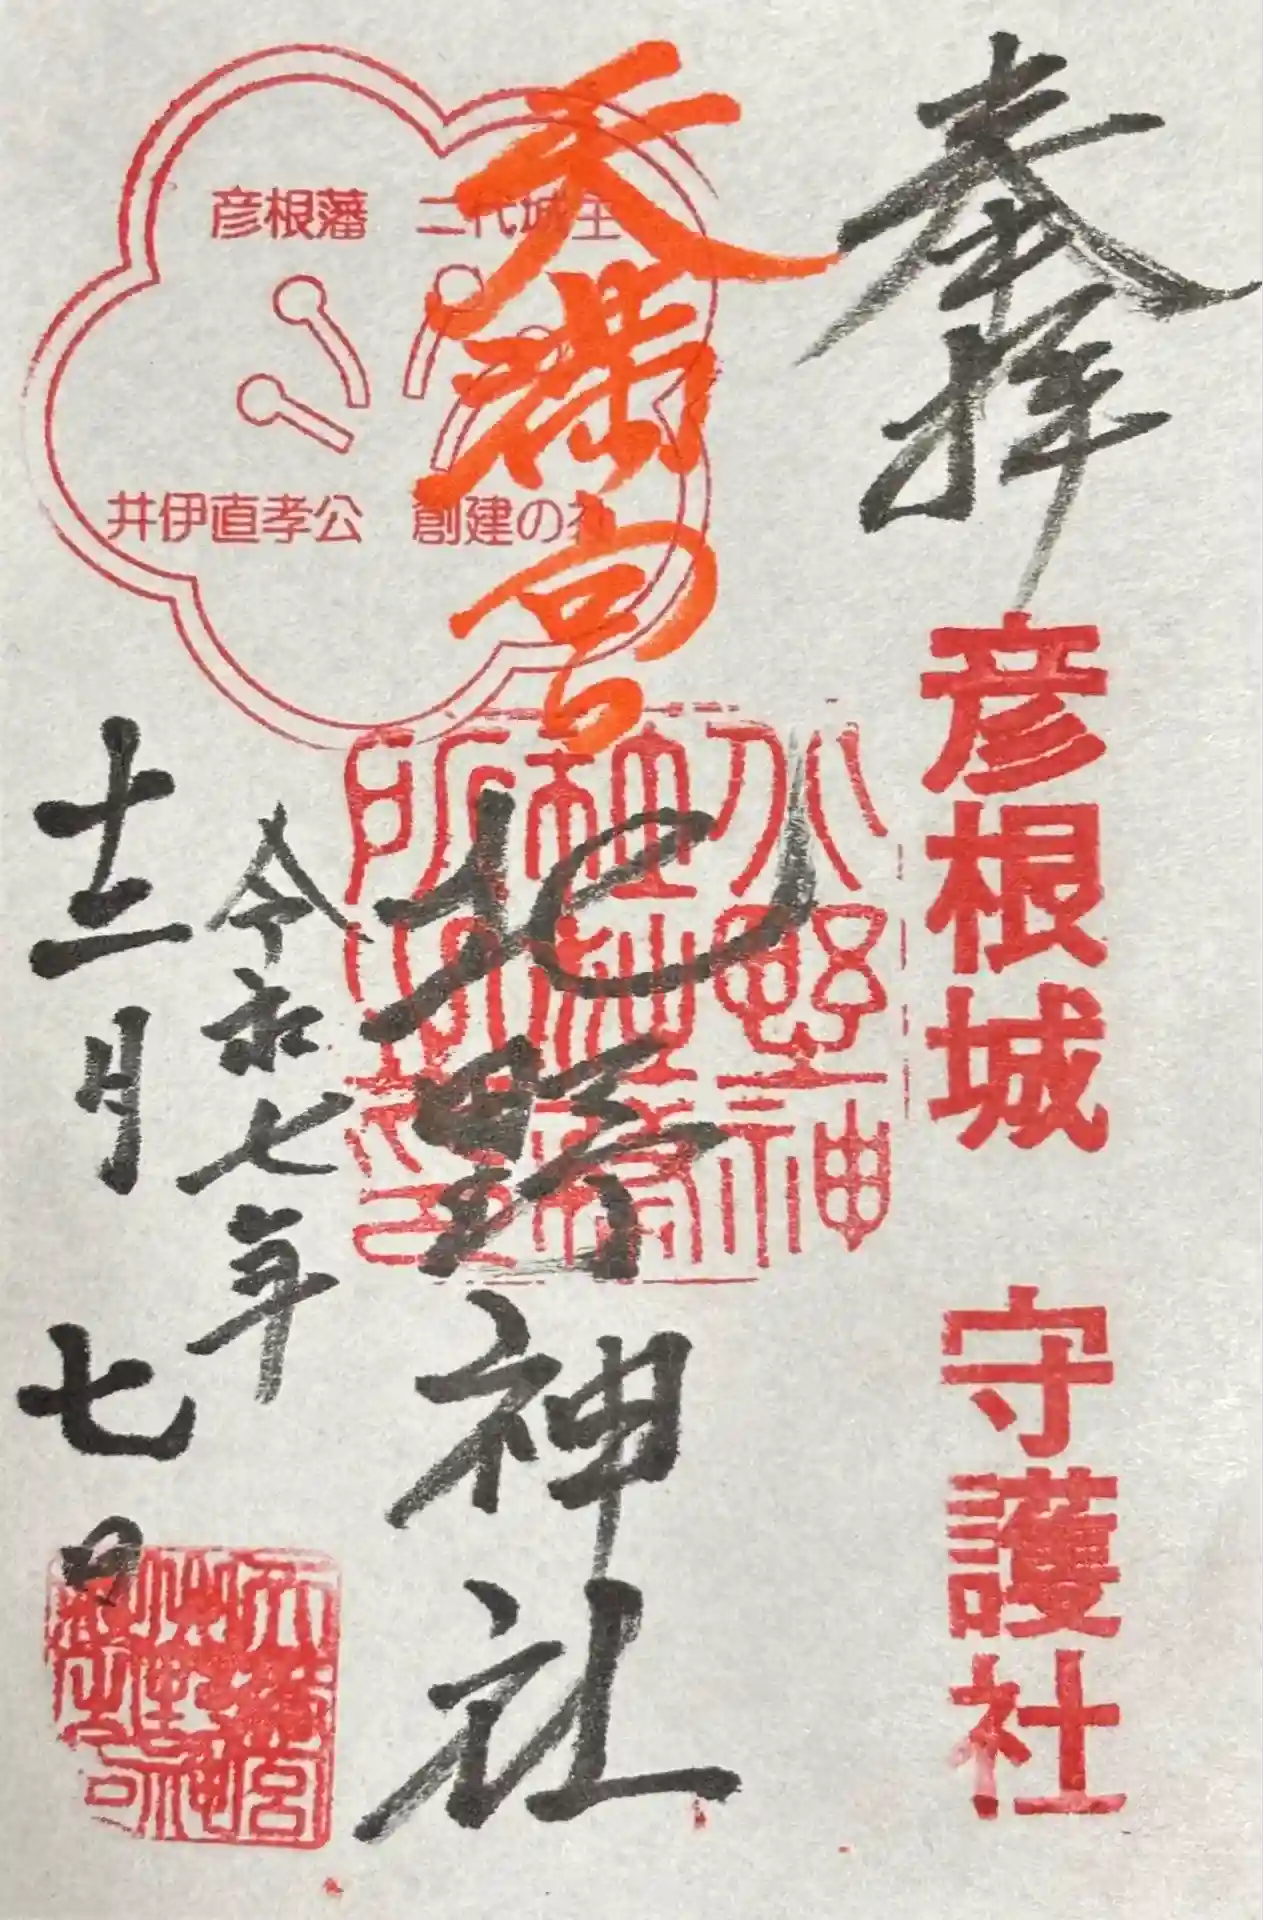 奉拝
彦根城 守護社
天満宮
北野神社
彦根藩 二代城主
井伊直孝公 創建の社
令和七年
十二月七日